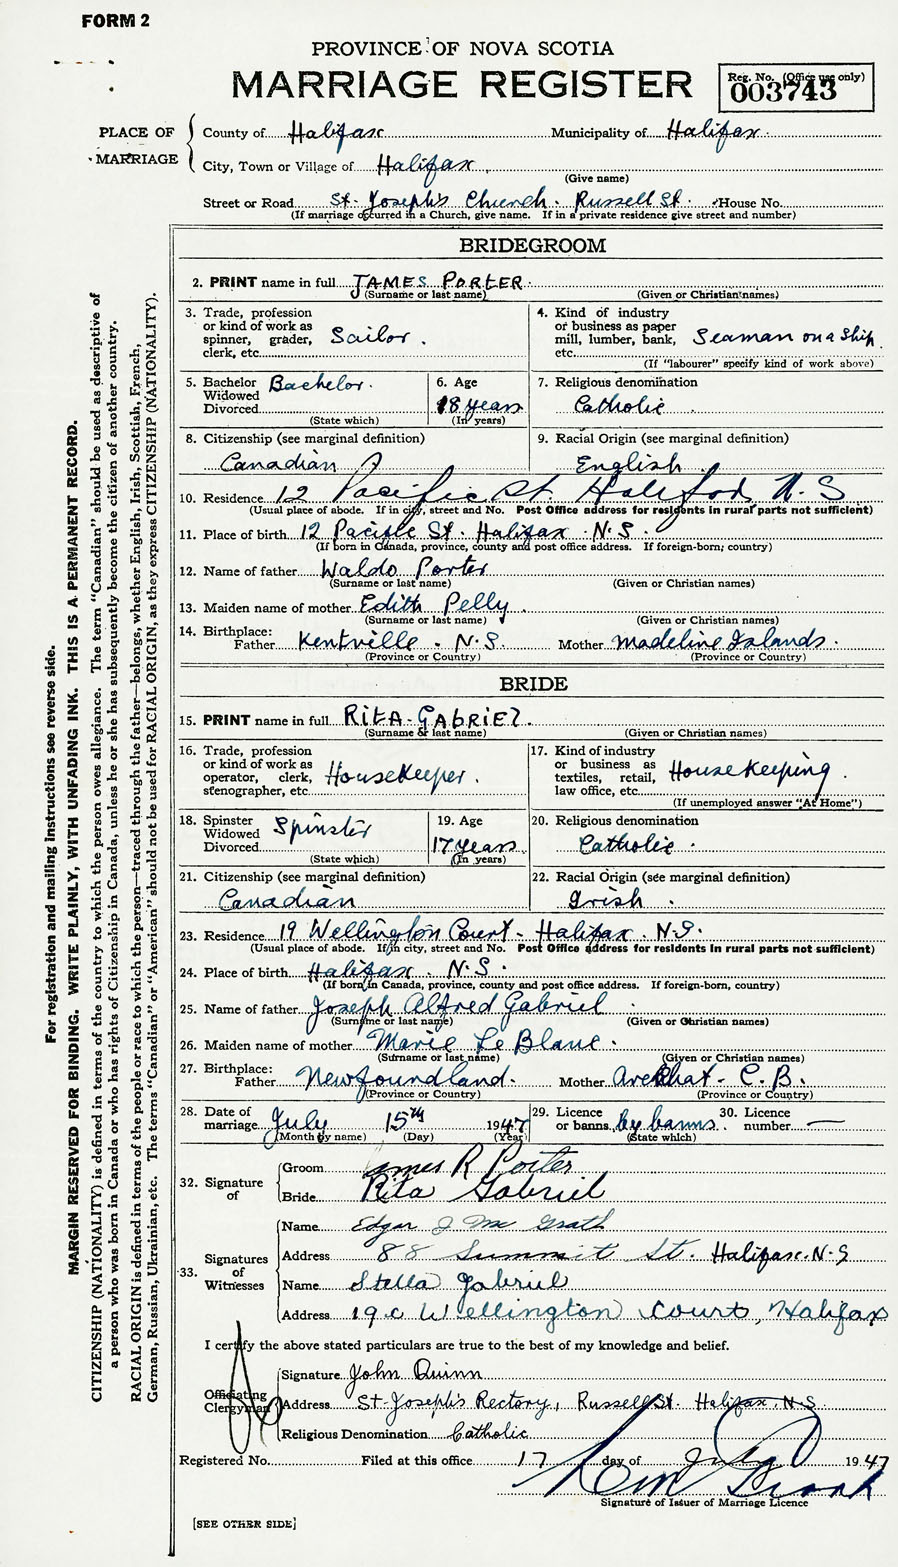 FORM 2
PROVINCE OF NOVA SCOTIA
MARRIAGE REGISTER
Reg. No. (Office use only)
003743
PLACE OF MARRIAGE
County of Halifax Municipality of Halifax.
City, Town or Village of Halifax
(Give name)
Street or Road St. Joseph's Church. Russell St. House No.
(If marriage occurred in a Church, give name. If in a private residence give street and number)
BRIDEGROOM
2. PRINT name in full JAMES PORTER.
(Surname or last name) (Given or Christian names)
3. Trade, profession or kind of work as spinner, grader, clerk, etc. Sailor.
4. Kind of industry or business as paper mill, lumber, bank, etc. Seaman on a Ship.
(If "labourer" specify kind of work above)
5. Bachelor Widowed Divorced Bachelor.
(State which)
6. Age 18 years
(In years)
7. Religious denomination
Catholic.
8. Citizenship (see marginal definition)
Canadian
9. Racial Origin (see marginal definition)
English.
10. Residence 12 Pacific St Halifax N.S
(Usual place of abode. If in city, street and No. Post Office address for residents in rural parts not sufficient)
11. Place of birth 12 Pacific St. Halifax N.S.
(If born in Canada, province, county and post office address. If foreign-born; country)
12. Name of father Waldo Porter
(Surname or last name) (Given or Christian names)
13. Maiden name of mother Edith Pelly.
(Surname or last name) (Given or Christian names)
14. Birthplace: Father Kentville - N.S. Mother Madeline Islands.
(Province or Country) (Province or Country)
BRIDE
15. PRINT name in full RITA GABRIEL.
(Surname or last name) (Given or Christian names)
16. Trade, profession or kind of work as operator, clerk, stenographer, etc. Housekeeper.
17. Kind of industry or business as textiles, retail, law office, etc. Housekeeping.
(If unemployed answer "At Home")
18. Spinster Widowed Divorced Spinster
(State which)
19. Age 17 years
(In years)
20. Religious denomination
Catholic.
21. Citizenship (see marginal definition)
Canadian
22. Racial Origin (see marginal definition)
Irish.
23. Residence 19 Wellington Court - Halifax N.S.
(Usual place of abode. If in city, street and No. Post Office address for residents in rural parts not sufficient)
24. Place of birth Halifax. N.S.
(If born in Canada, province, county and post office address. If foreign-born, country)
25. Name of father Joseph Alfred Gabriel
(Surname or last name) (Given or Christian names)
26. Maiden name of mother Marie Le Blanc.
(Surname or last name) (Given or Christian names)
27. Birthplace: Father Newfoundland. Mother Arichat - C.B.
(Province or Country) (Province or Country)
28. Date of marriage July 15th 1947
(Month by name) (Day) (Year)
29. Licence or banns by banns.
(State which)
30. Licence number —
32. Signature of
Groom James R Porter
Bride Rita Gabriel
33. Signatures of Witnesses
Name Edgar J Mc Grath
Address 88 Summit St. Halifax. N.S
Name Stella Gabriel
Address 19c Wellington Court, Halifax
I certify the above stated particulars are true to the best of my knowledge and belief.
Officiating Clergyman
Signature John Quinn
Address St-Joseph's Rectory, Russell St. Halifax. N.S
Religious Denomination Catholic
Registered No. Filed at this office 17 day of July 1947
Signature of Issuer of Marriage Licence
[SEE OTHER SIDE]
For registration and mailing instructions see reverse side.
MARGIN RESERVED FOR BINDING. WRITE PLAINLY, WITH UNFADING INK. THIS IS A PERMANENT RECORD.
CITIZENSHIP (NATIONALITY) is defined in terms of the country to which the person owes allegiance. The term "Canadian" should be used as descriptive of
a person who was born in Canada or who has rights of Citizenship in Canada, unless he or she has subsequently become the citizen of another country.
RACIAL ORIGIN is defined in terms of the people or race to which the person—traced through the father—belongs, whether English, Irish, Scottish, French,
German, Russian, Ukrainian, etc. The terms "Canadian" or "American" should not be used for RACIAL ORIGIN, as they express CITIZENSHIP (NATIONALITY).